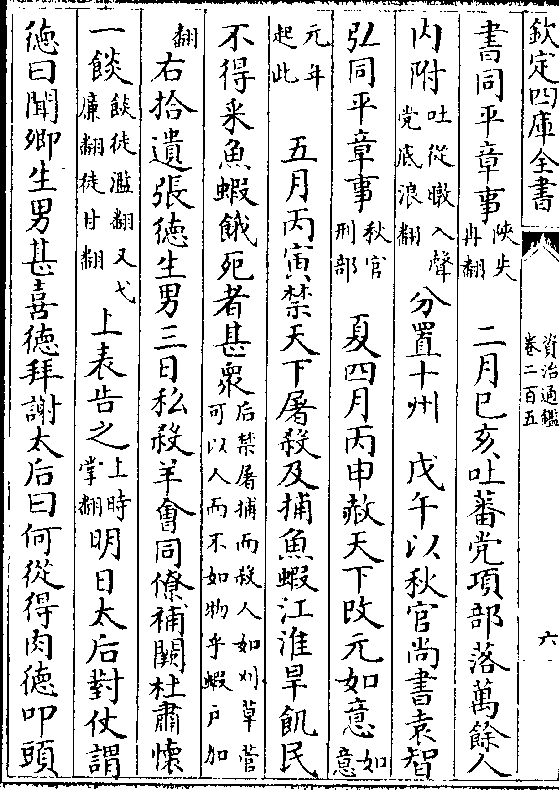 欽定四庫全書
資治通鑑
卷二百五
六
書同平章事陜失冉翻 二月巳亥吐蕃党項部落萬餘人
内附吐從暾入聲党底浪翻 分置十州 戊午以秋官尚書袁智
弘同平章事秋官刑部 夏四月丙申赦天下改元如意如意
元年起此 五月丙寅禁天下屠殺及捕魚蝦江淮旱飢民
不得采魚蝦餓死者甚衆后禁屠捕而殺人如刈草菅可以人而不如物乎蝦户加
翻 右拾遺張德生男三日私殺羊會同僚補闕杜肅懷
一餤餤徒濫翻又弋廉翻徒甘翻 上表告之上時掌翻 明日太后對仗謂
德曰聞卿生男甚喜德拜謝太后曰何從得肉德叩頭